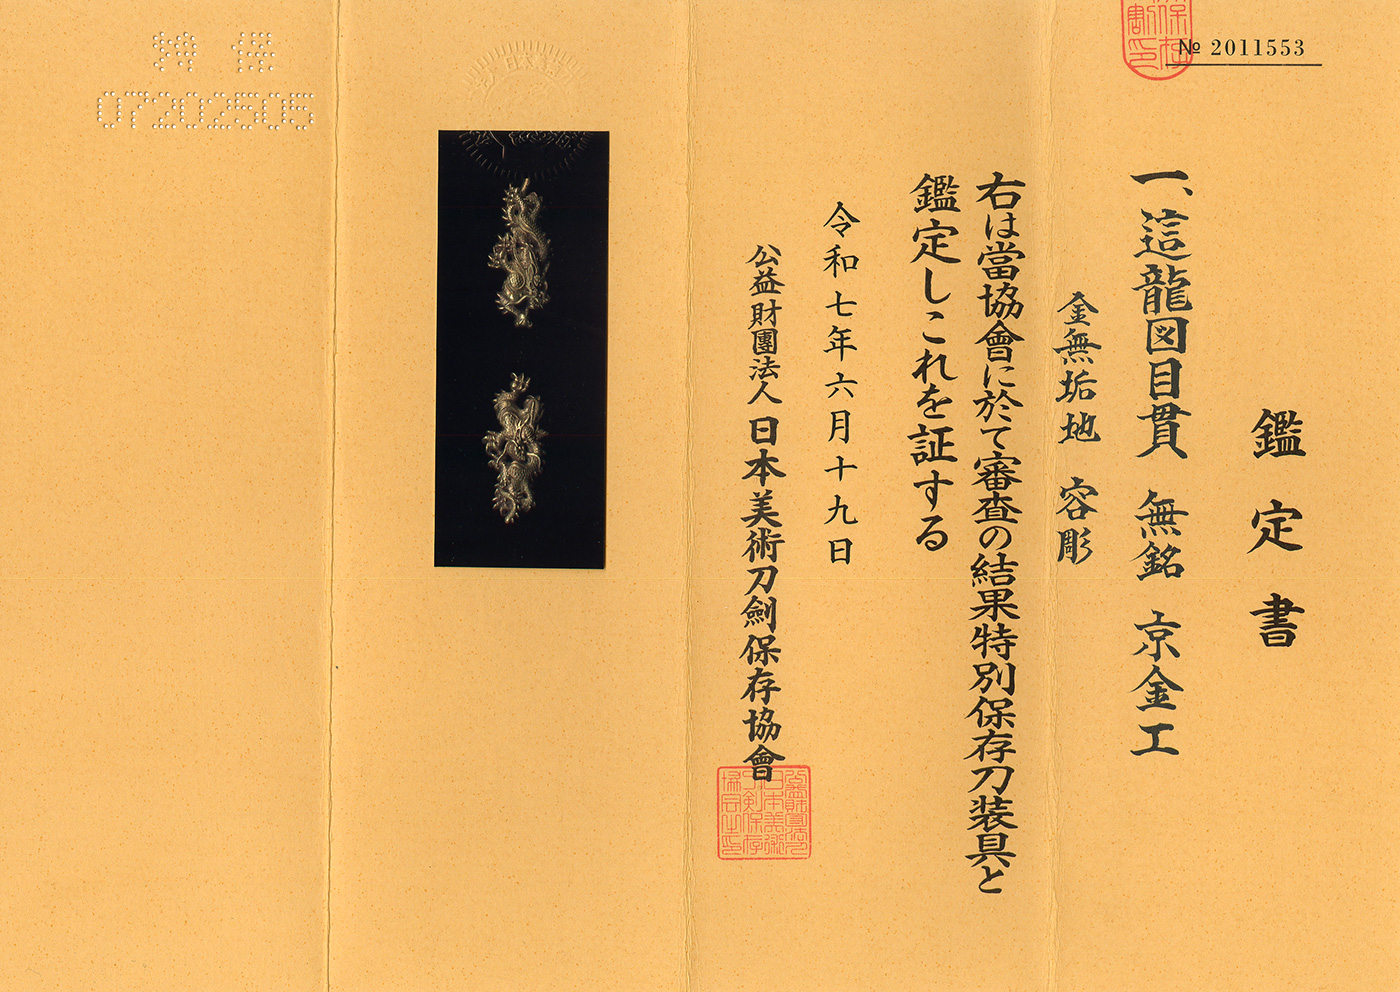 № 2011553
鑑定書
一、這龍図目貫 無銘 京金工
金無垢地 容彫
右は當協會に於て審査の結果特別保存刀装具と
鑑定しこれを証する
令和七年六月十九日
公益財團法人 日本美術刀劍保存協會
07202505